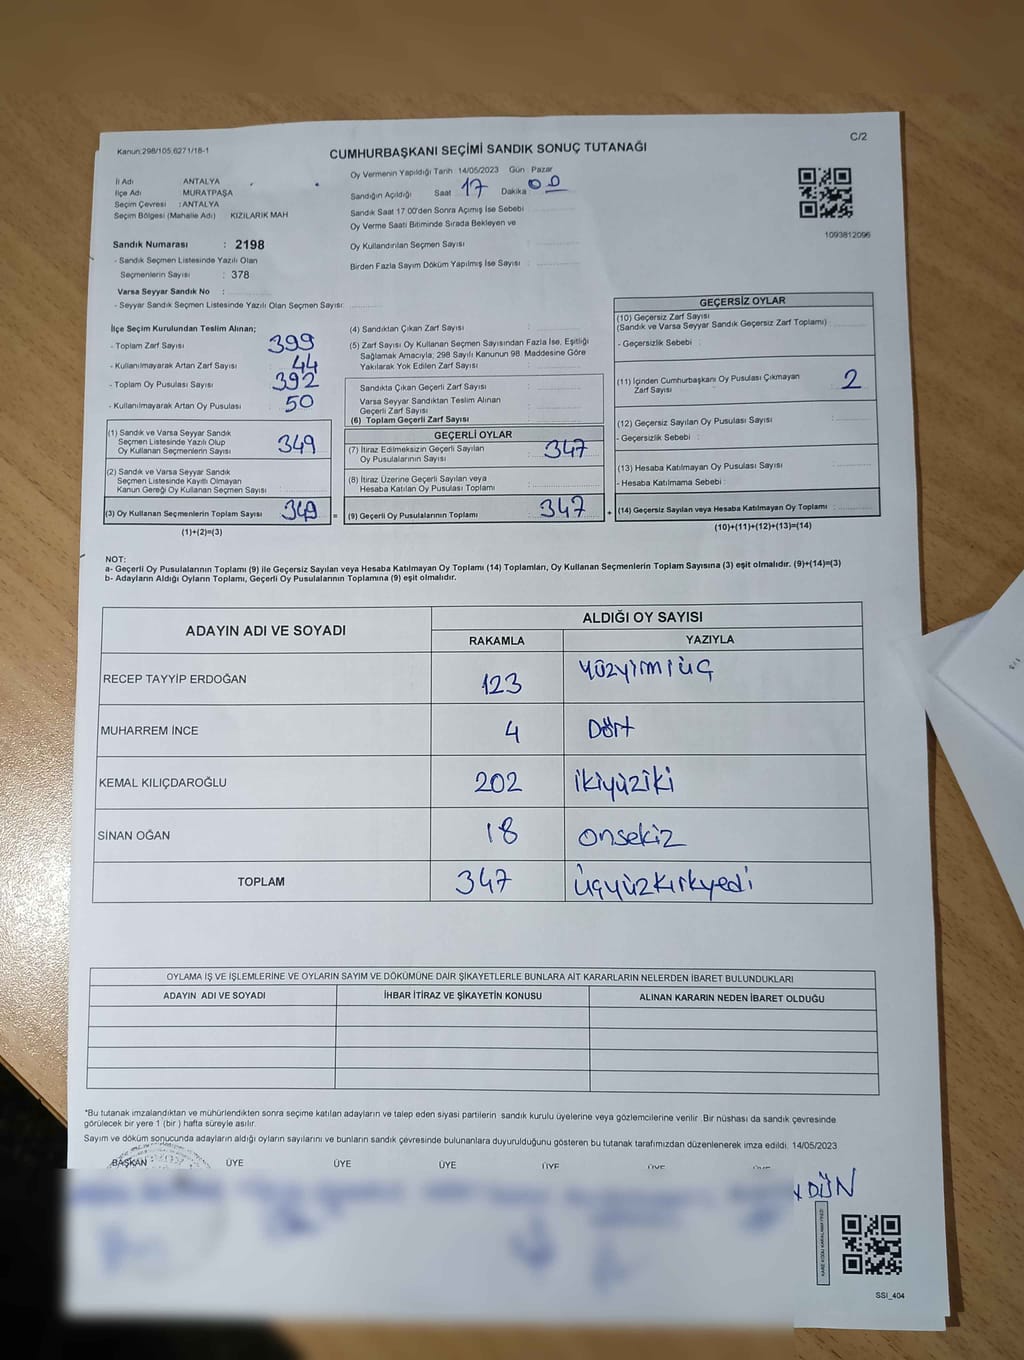 Kanun:298/105,6271/18-1
C/2
CUMHURBAŞKANI SEÇİMİ SANDIK SONUÇ TUTANAĞI
İl Adı ANTALYA
İlçe Adı MURATPAŞA
Seçim Çevresi : ANTALYA
Seçim Bölgesi (Mahalle Adı) KIZILARIK MAH
Sandık Numarası : 2198
- Sandık Seçmen Listesinde Yazılı Olan
Seçmenlerin Sayısı : 378
Varsa Seyyar Sandık No :
- Seyyar Sandık Seçmen Listesinde Yazılı Olan Seçmen Sayısı:
Oy Vermenin Yapıldığı Tarih 14/05/2023 Gün Pazar
Sandığın Açıldığı Saat 17 Dakika 00
Sandık Saat 17 00'den Sonra Açımış İse Sebebi
Oy Verme Saati Bitiminde Sırada Bekleyen ve
Oy Kullandırılan Seçmen Sayısı
Birden Fazla Sayım Döküm Yapılmış İse Sayısı
1093812096
İlçe Seçim Kurulundan Teslim Alınan;
- Toplam Zarf Sayısı 399
- Kullanılmayarak Artan Zarf Sayısı 44
- Toplam Oy Pusulası Sayısı 392
- Kullanılmayarak Artan Oy Pusulası 50
(1) Sandık ve Varsa Seyyar Sandık
Seçmen Listesinde Yazılı Olup
Oy Kullanan Seçmenlerin Sayısı 349
(2) Sandık ve Varsa Seyyar Sandık
Seçmen Listesinde Kayıtlı Olmayan
Kanun Gereği Oy Kullanan Seçmen Sayısı
(3) Oy Kullanan Seçmenlerin Toplam Sayısı 349
(1)+(2)=(3)
=
(4) Sandıktan Çıkan Zarf Sayısı
(5) Zarf Sayısı Oy Kullanan Seçmen Sayısından Fazla İse, Eşitliği
Sağlamak Amacıyla; 298 Sayılı Kanunun 98. Maddesine Göre
Yakılarak Yok Edilen Zarf Sayısı
Sandıkta Çıkan Geçerli Zarf Sayısı
Varsa Seyyar Sandıktan Teslim Alınan
Geçerli Zarf Sayısı
(6) Toplam Geçerli Zarf Sayısı
GEÇERLİ OYLAR
(7) İtiraz Edilmeksizin Geçerli Sayılan
Oy Pusulalarının Sayısı 347
(8) İtiraz Üzerine Geçerli Sayılan veya
Hesaba Katılan Oy Pusulası Toplamı
(9) Geçerli Oy Pusulalarının Toplamı 347
+
GEÇERSİZ OYLAR
(10) Geçersiz Zarf Sayısı
(Sandık ve Varsa Seyyar Sandık Geçersiz Zarf Toplamı)
- Geçersizlik Sebebi :
(11) İçinden Cumhurbaşkanı Oy Pusulası Çıkmayan
Zarf Sayısı 2
(12) Geçersiz Sayılan Oy Pusulası Sayısı
- Geçersizlik Sebebi :
(13) Hesaba Katılmayan Oy Pusulası Sayısı
- Hesaba Katılmama Sebebi :
(14) Geçersiz Sayılan veya Hesaba Katılmayan Oy Toplamı
(10)+(11)+(12)+(13)=(14)
NOT:
a- Geçerli Oy Pusulalarının Toplamı (9) ile Geçersiz Sayılan veya Hesaba Katılmayan Oy Toplamı (14) Toplamları, Oy Kullanan Seçmenlerin Toplam Sayısına (3) eşit olmalıdır. (9)+(14)=(3)
b- Adayların Aldığı Oyların Toplamı, Geçerli Oy Pusulalarının Toplamına (9) eşit olmalıdır.
ADAYIN ADI VE SOYADI ALDIĞI OY SAYISI
RAKAMLA YAZIYLA
RECEP TAYYİP ERDOĞAN 123 Yüzyirmiüç
MUHARREM İNCE 4 Dört
KEMAL KILIÇDAROĞLU 202 ikiyüziki
SİNAN OĞAN 18 onsekiz
TOPLAM 347 Üçyüzkırkyedi
OYLAMA İŞ VE İŞLEMLERİNE VE OYLARIN SAYIM VE DÖKÜMÜNE DAİR ŞİKAYETLERLE BUNLARA AİT KARARLARIN NELERDEN İBARET BULUNDUKLARI
ADAYIN ADI VE SOYADI İHBAR İTİRAZ VE ŞİKAYETİN KONUSU ALINAN KARARIN NEDEN İBARET OLDUĞU
*Bu tutanak imzalandıktan ve mühürlendikten sonra seçime katılan adayların ve talep eden siyasi partilerin sandık kurulu üyelerine veya gözlemcilerine verilir. Bir nüshası da sandık çevresinde
görülecek bir yere 1 (bir ) hafta süreyle asılır.
Sayım ve döküm sonucunda adayların aldığı oyların sayılarını ve bunların sandık çevresinde bulunanlara duyurulduğunu gösteren bu tutanak tarafımızdan düzenlenerek imza edildi. 14/05/2023
BAŞKAN ÜYE ÜYE ÜYE ÜYE ÜYE ÜYE
DÜN
SSI_404